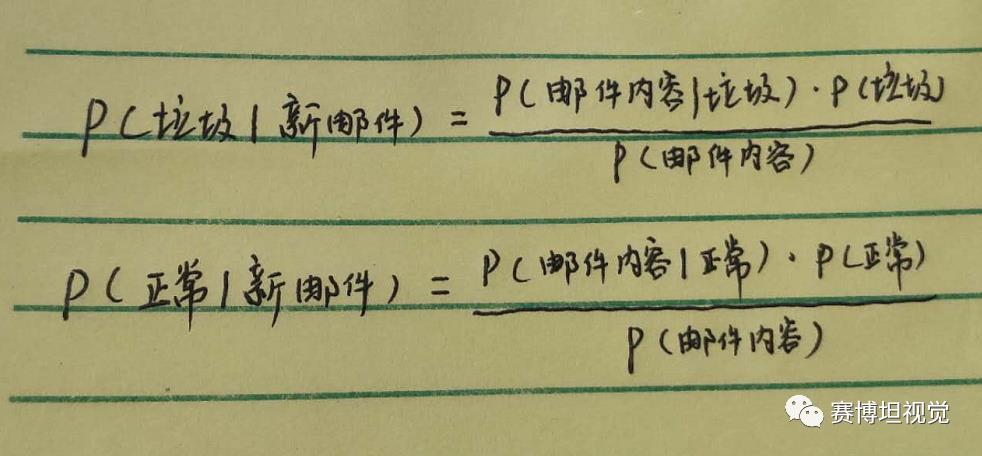 P(垃圾|新邮件) = P(邮件内容|垃圾)·P(垃圾) / P(邮件内容)
P(正常|新邮件) = P(邮件内容|正常)·P(正常) / P(邮件内容)
赛博坦视觉